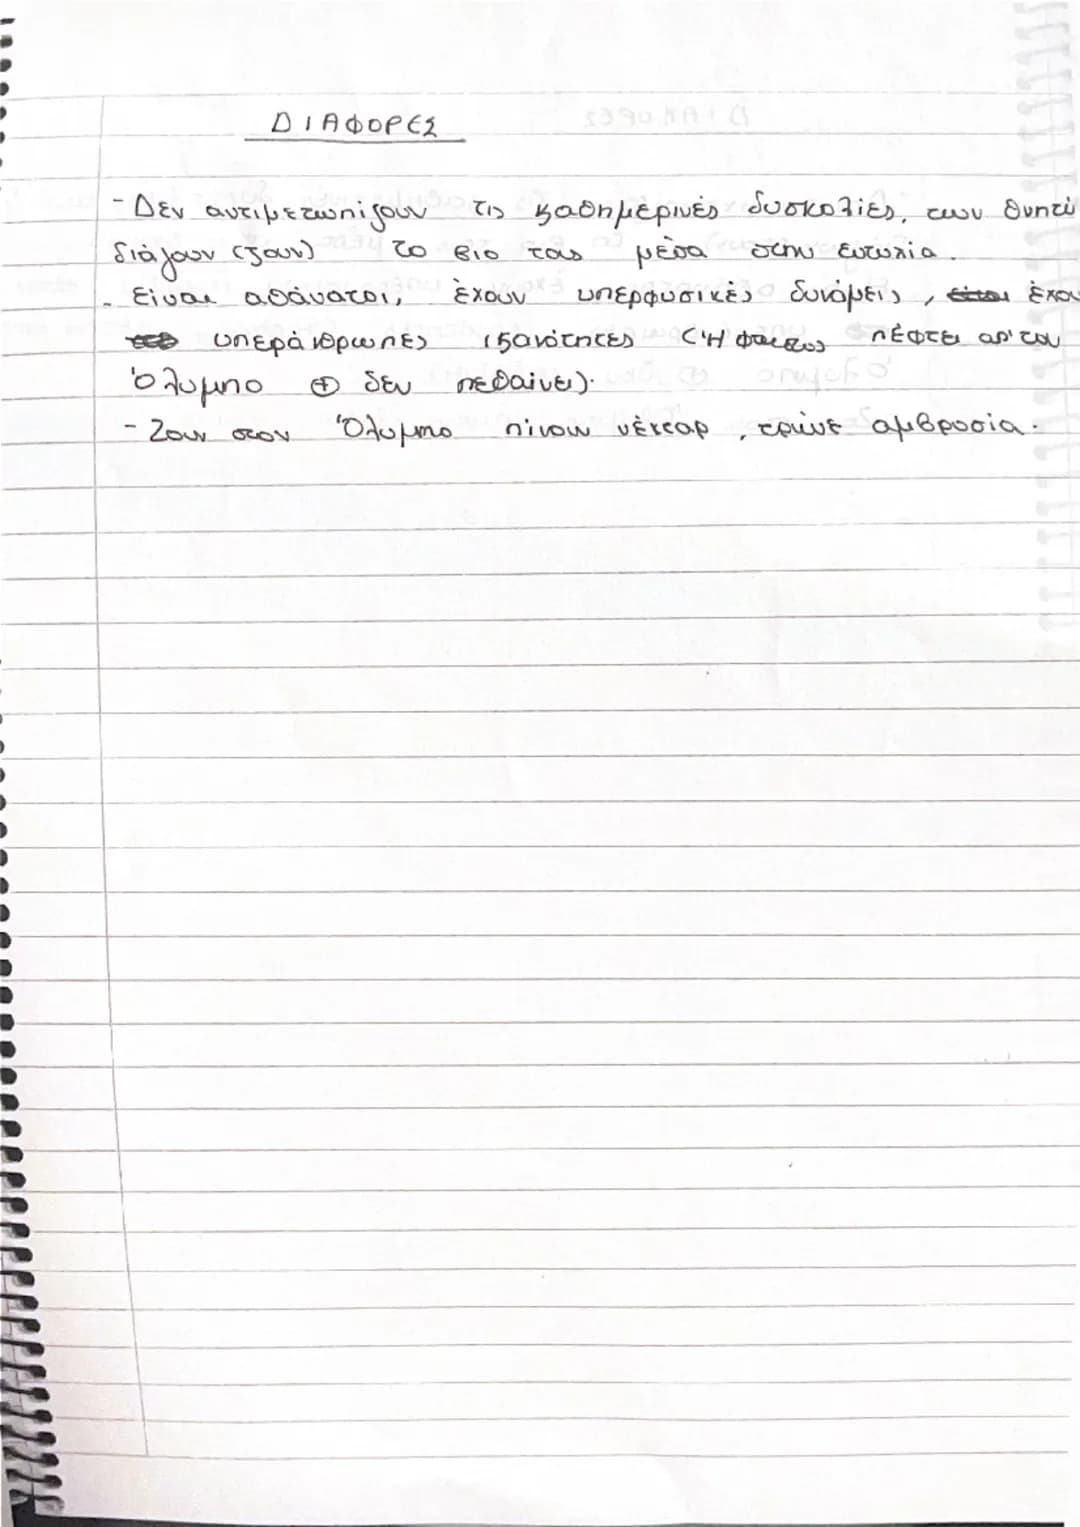 ΔΙΑΦΟΡΕΣ
- Δεν αντιμετωπίζουν τις καθημερινές δυσκολίες, των θνητώ
διάγουν (ζουν) το βίο τους μέσα στην ευτυχία.
- Είναι αθάνατοι, έχουν υπερφυσικές δυνάμεις, έχου
υπεράνθρωπες ικανότητες (Ή φαιστος πέφτει απ'τον
Όλυμπο ⊕ δεν πεθαίνει).
- Ζουν στον Όλυμπο πίνουν νέκταρ, τρώνε αμβροσία.